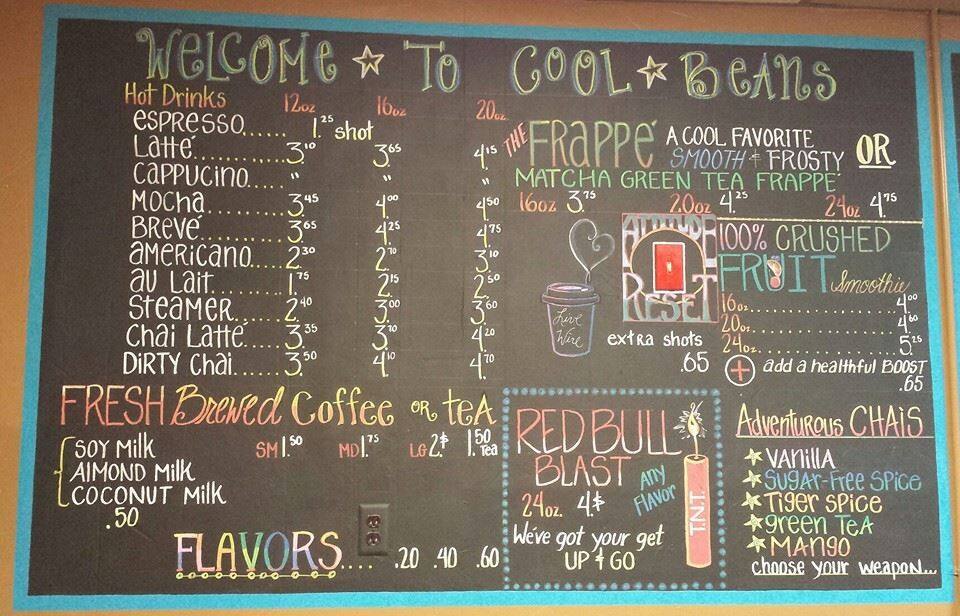 WELCOME TO COOL BEANS
Hot Drinks 12oz 16oz 20oz
espresso...... 1.25 shot
Latté.......... 3.10 3.65 4.15
Cappucino..... " " "
Mocha.......... 3.45 4.00 4.50
Brevé.......... 3.65 4.25 4.75
americano..... 2.30 2.70 3.10
au Lait......... 1.75 2.15 2.50
Steamer....... 2.40 3.00 3.60
Chai Latté..... 3.35 3.70 4.20
DIRTY Chai.... 3.50 4.10 4.70
FRESH Brewed Coffee OR teA
SM 1.50 MD 1.75 LG 2.$ 1.50 Tea
SOY Milk
AlMOND Milk
COCONUT Milk
.50
FLAVORS.... .20 .40 .60
THE FRAPPÉ A COOL FAVORITE
SMOOTH & FROSTY OR
MATCHA GREEN TEA FRAPPÉ
16oz 3.75 20oz 4.25 24oz 4.75
Live Wire
ATTITUDE
RESET
extra shots
.65
100% CRUSHED
FRUIT Smoothie
16oz................ 4.00
20oz................ 4.60
24oz................ 5.25
+ add a healthful BOOST
.65
RED BULL
BLAST
24oz. 4.$ Any FlAVOR
We've got your get
UP & GO
T.N.T.
Adventurous CHAIS
VANIllA
SUGAR-FREE SPICE
TIGER SPICE
green TEA
MANGO
choose your weapon...